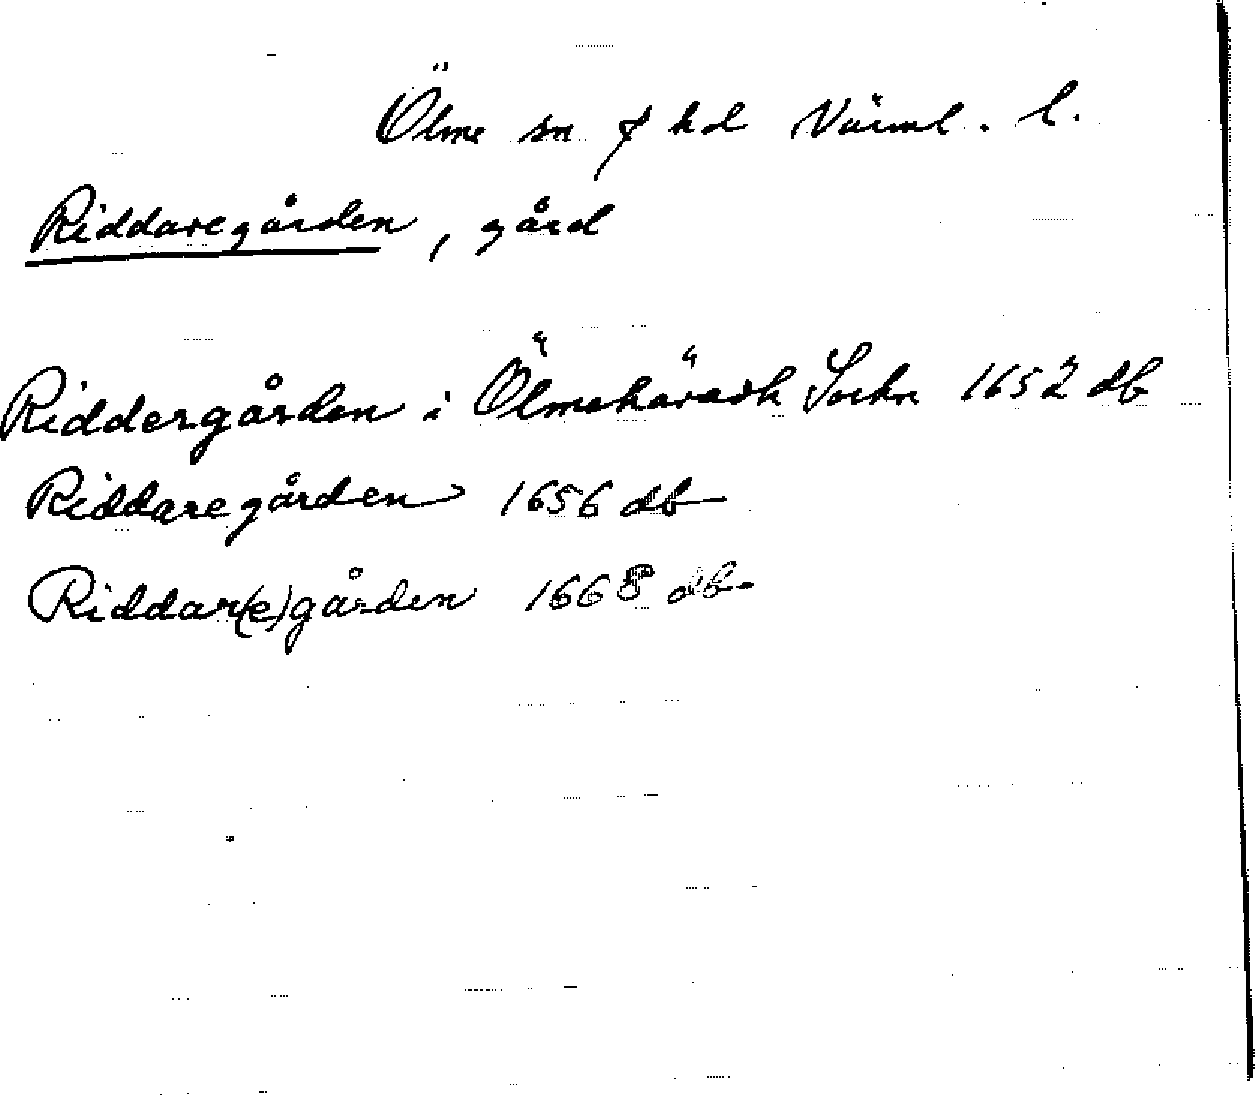 Ölme sn & hd Värml. l.
Riddaregården, gård
Riddergården i Ölmehäradh Sockn 1652 db
Riddaregården 1656 db
Riddar(e)gården 1668 db